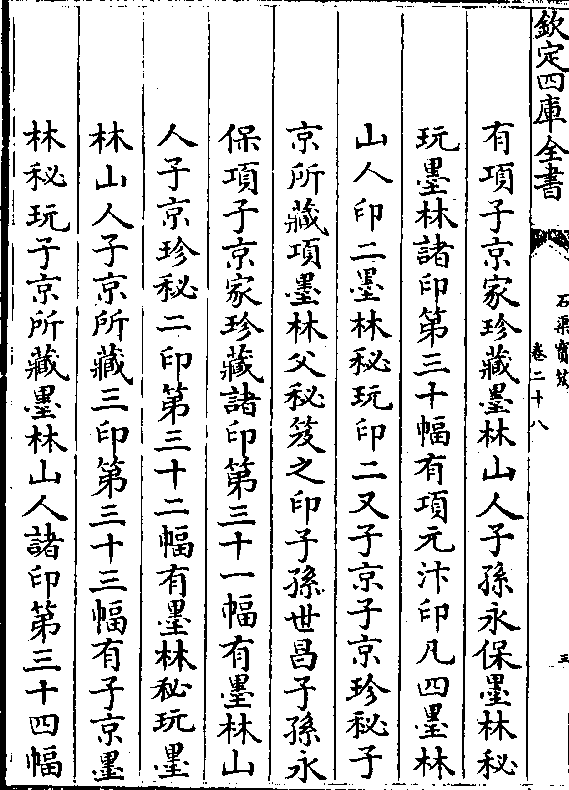 欽定四庫全書
石渠寳笈
卷二十八
三
有項子京家珍藏墨林山人子孫永保墨林秘
玩墨林諸印第三十幅有項元汴印凡四墨林
山人印二墨林秘玩印二又子京子京珍秘子
京所藏項墨林父秘笈之印子孫世昌子孫永
保項子京家珍藏諸印第三十一幅有墨林山
人子京珍秘二印第三十二幅有墨林秘玩墨
林山人子京所藏三印第三十三幅有子京墨
林秘玩子京所藏墨林山人諸印第三十四幅